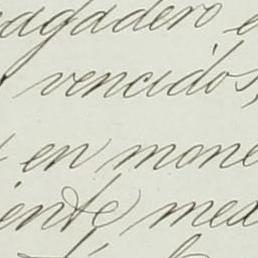 agadero e
vencidos,
en mone
iente, med